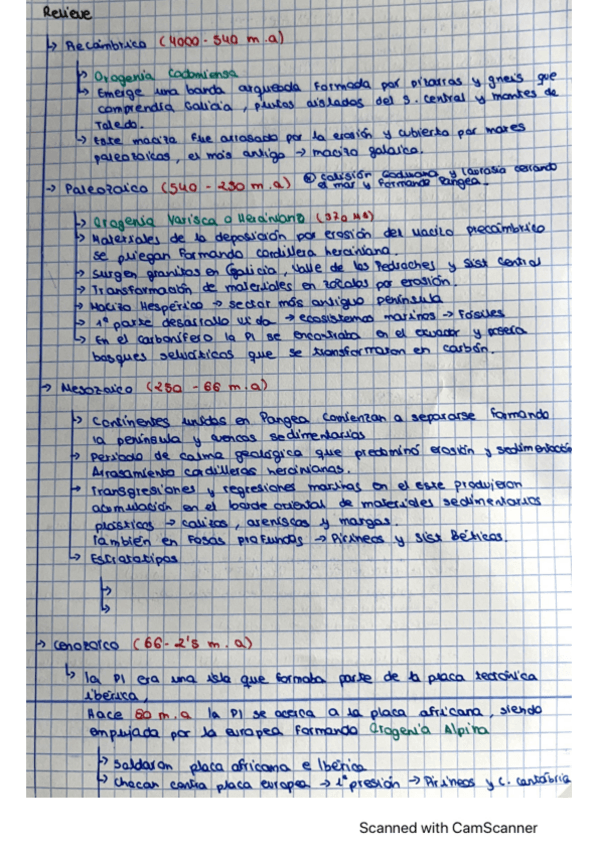 Relieve
↳ Precámbrico (4000 - 540 m.a)
↳ Orogenia Cadomiense
↳ Emerge una banda arqueada formada por pizarras y gneis que
comprendía Galicia, puntos aislados del S. central y montes de
Toledo.
↳ Este macizo fue arrasado por la erosión y cubierto por mares
paleozoicos, el más antiguo → macizo galaico.
→ Paleozoico (540 - 250 m.a) colisión Godwana y laurasia cerrando
el mar y formando Pangea.
↳ Orogenia Varisca o Herciniana (370 MA)
↳ Materiales de la deposición por erosión del macizo precámbrico
se pliegan formando cordillera herciniana.
↳ Surgen granitos en Galicia, Valle de los Pedroches y Sist Central
↳ Transformación de materiales en zócalos por erosión.
↳ Macizo Hespérico → sector más antiguo península
↳ 1ª parte desarrollo vida → ecosistemas marinos → Fósiles
↳ En el carbonífero la PI se encontraba en el ecuador y poseía
bosques selváticos que se transformaron en carbón.
→ Mesozoico (250 - 66 m.a)
↳ Continentes unidos en Pangea comienzan a separarse formando
la península y cuencas sedimentarias
↳ Periodo de calma geológica que predominó erosión y sedimentación
Arrasamiento cordilleras hercinianas.
↳ Transgresiones y regresiones marinas en el este produjeron
acumulación en el borde oriental de materiales sedimentarios
plásticos → calizas, areniscas y margas.
También en fosas profundas → Pirineos y Sist Béticos.
↳ Estratotipos
↳
↳
→ Cenozoico (66 - 2'5 m.a)
↳ la PI era una isla que formaba parte de la placa tectónica
ibérica,
Hace 80 m.a la PI se acerca a la placa africana, siendo
empujada por la europea formando Orogenia Alpina
↳ Saldaron placa africana e Ibérica
↳ Chocan contra placa europea → 1ª presión → Pirineos y C. cantábrica
Scanned with CamScanner